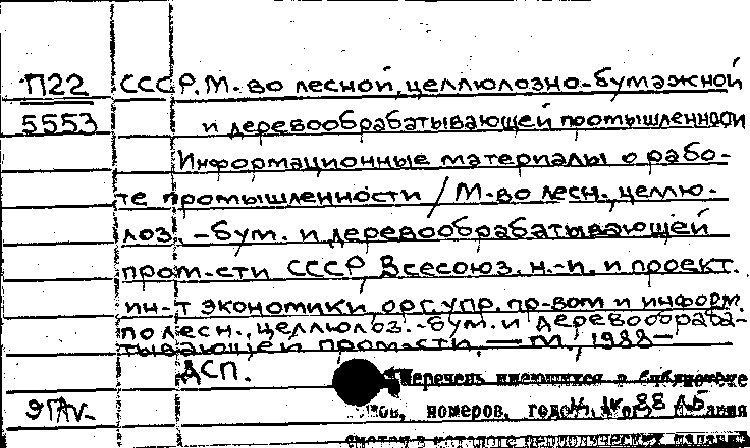 П22 СССР. М-во лесной, целлюлозно-бумажной
5553 и деревообрабатывающей промышленности
Информационные материалы о рабо-
те промышленности / М-во лесн., целлю-
лоз.-бум. и деревообрабатывающей
пром-сти СССР, Всесоюз. н.-и. и проект.
ин-т экономики, орг. упр. пр-вом и информ.
по лесн., целлюлоз.-бум. и деревообраба-
тывающей пром-сти. — М., 1988—
ДСП.
Перечень имеющихся в библиотеке
номеров,
смотри в каталоге периодических изданий